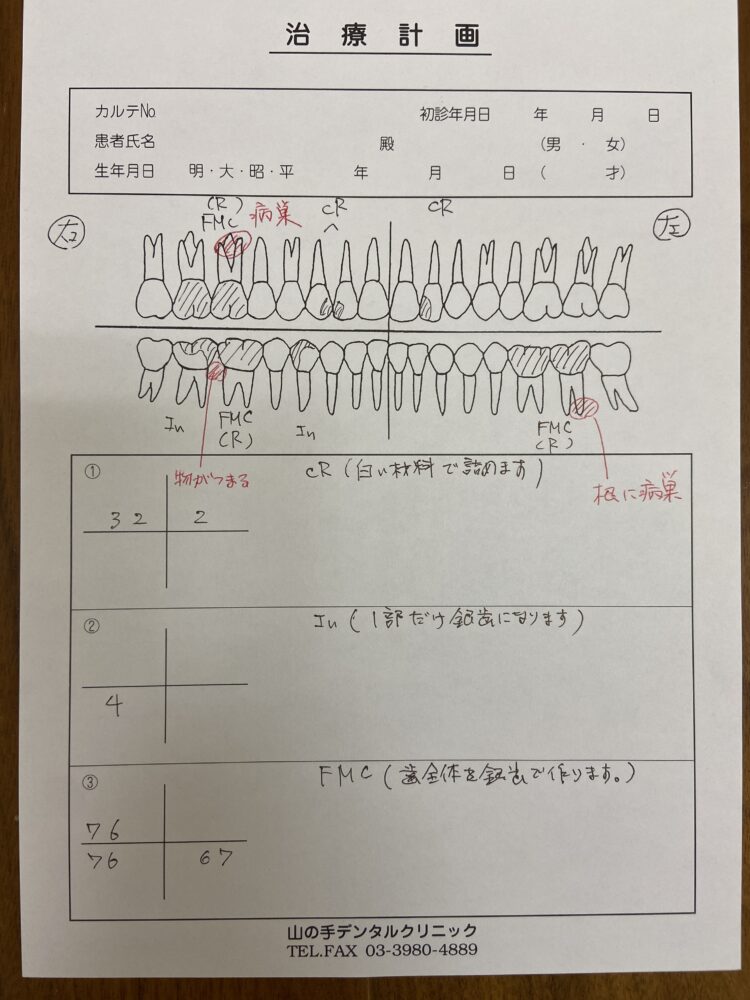 治療計画
カルテNo. 初診年月日 年 月 日
患者氏名 殿 (男・女)
生年月日 明・大・昭・平 年 月 日 ( 才)
(R) 病巣 CR CR
FMC
右 左
In FMC In FMC
(R) (R)
物がつまる 根に病巣
① CR (白い材料で詰めます)
3 2 2
② In (1部だけ銀歯になります)
4
③ FMC (歯全体を銀歯で作ります。)
7 6
7 6 6 7
山の手デンタルクリニック
TEL.FAX 03-3980-4889